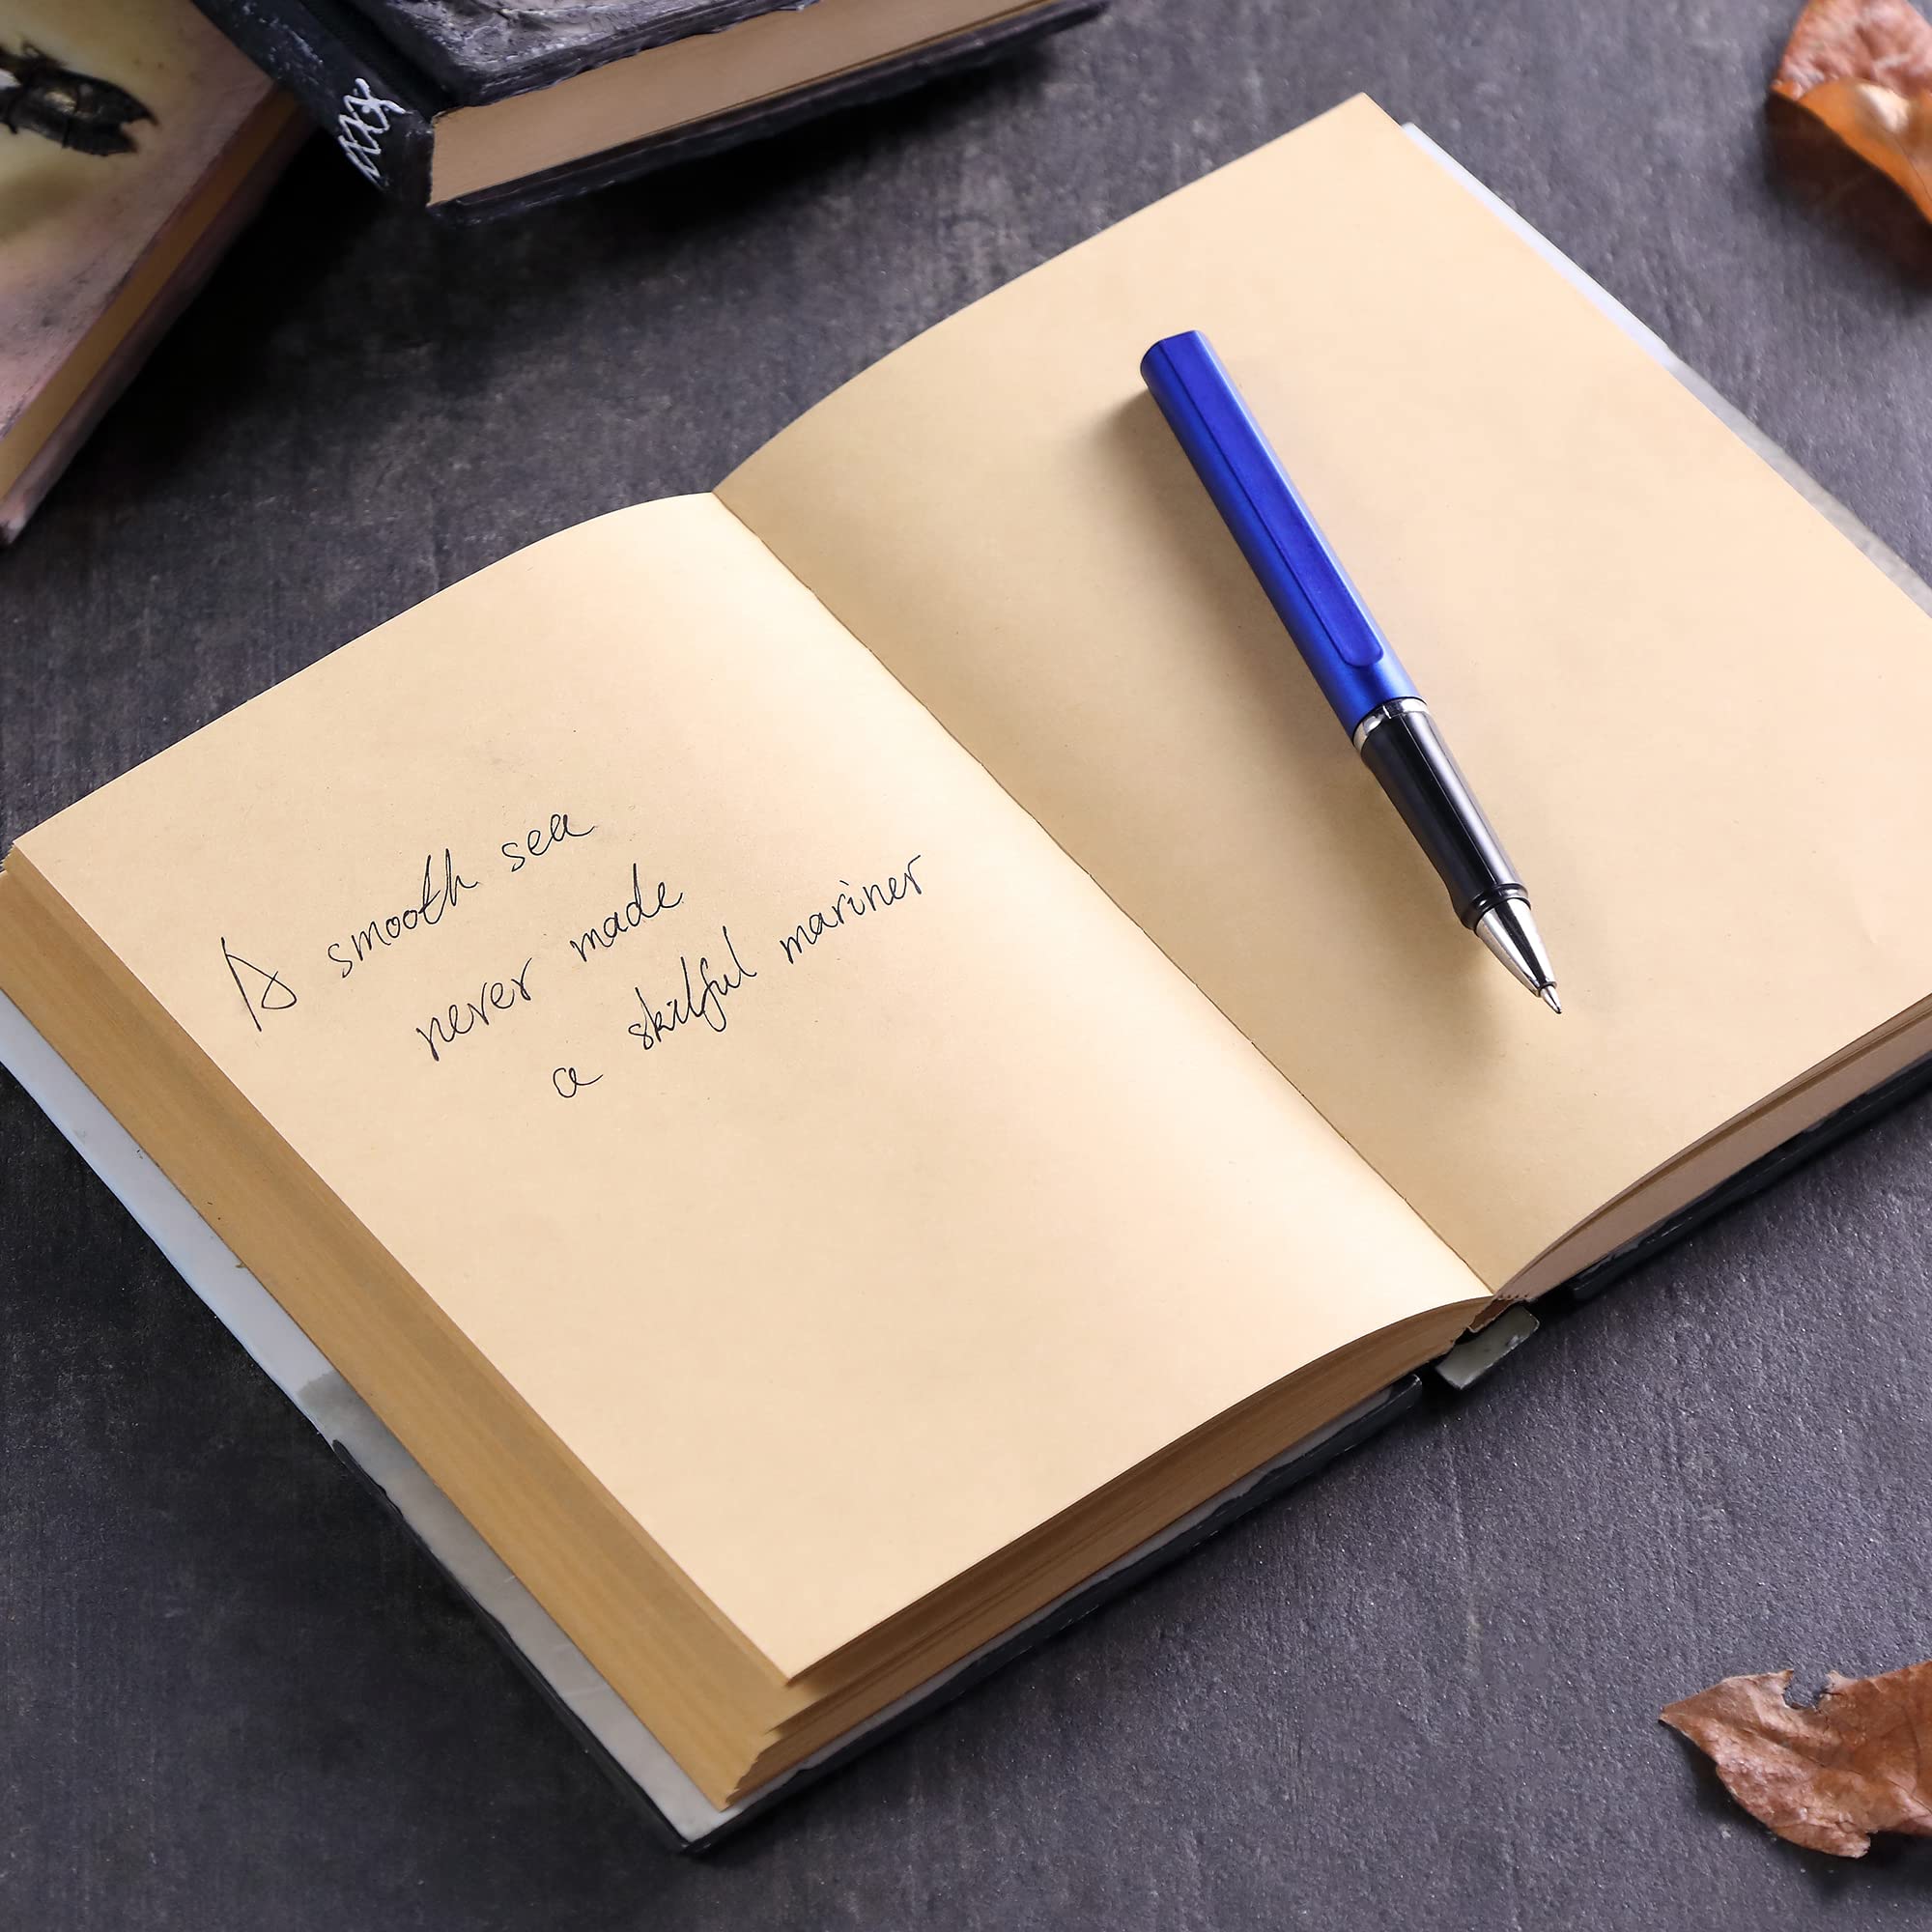 A smooth sea
never made
a skilful mariner